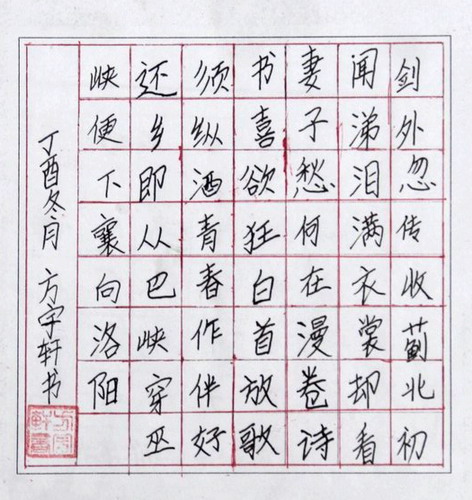 剑外忽传收蓟北初
闻涕泪满衣裳却看
妻子愁何在漫卷诗
书喜欲狂白首放歌
须纵酒青春作伴好
还乡即从巴峡穿巫
峡便下襄向洛阳
丁酉冬月 方字轩书